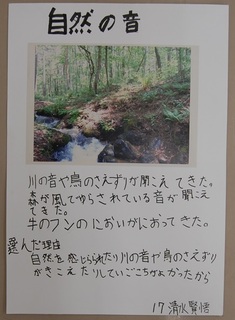 自然の音
川の音や鳥のさえずりが聞こえてきた。
森が風でゆらされている音が聞こえ
てきた。
牛のフンのにおいがにおってきた。
選んだ理由
自然を感じられたり川の音や鳥のさえずり
がきこえたりしていごこちがよかったから
17 清水賢悟